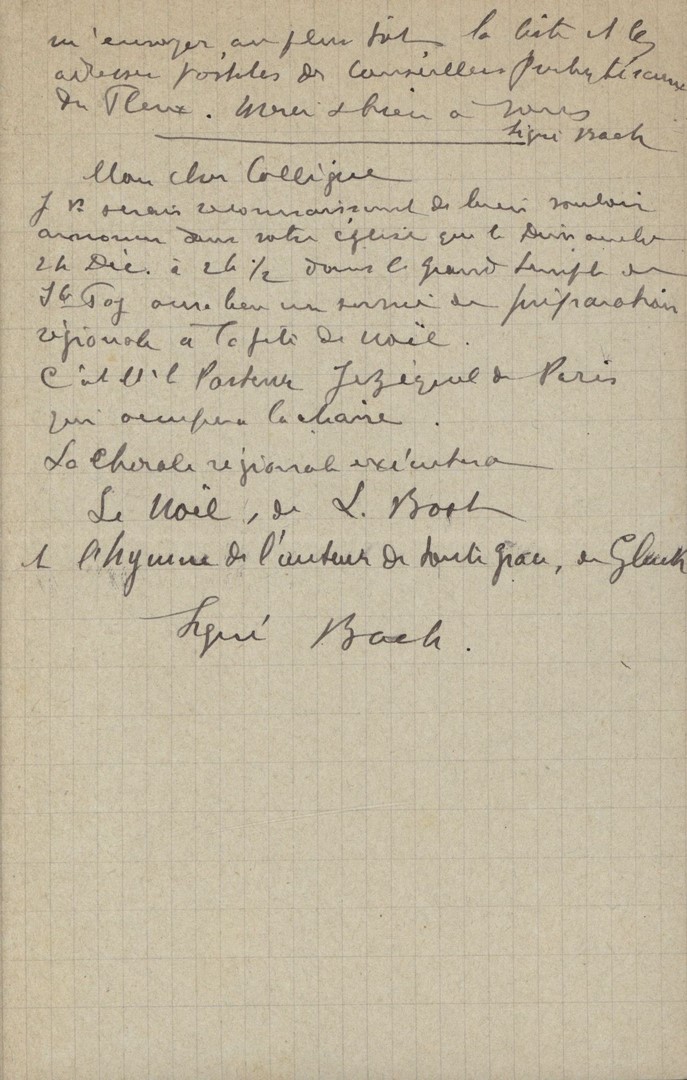 m'envoyer au plus tôt, la liste et les
adresses postales des Conseillers Presbytéraux
du Fleix. Merci & bien à vous
signé Bach
Mon cher Collègue
Je vs serais reconnaissant de bien vouloir
annoncer dans votre église que le Dimanche
24 Déc. à 2h 1/2 dans le grand temple de
Ste Foy aura lieu un service de préparation
régionale à la fête de Noël.
C'est M. le Pasteur Jézéquel de Paris
qui occupera la chaire.
La Chorale régionale exécutera
Le Noël, de L. Bost
et l'hymne de l'auteur de toute grâce, de Gluck
signé Bach.